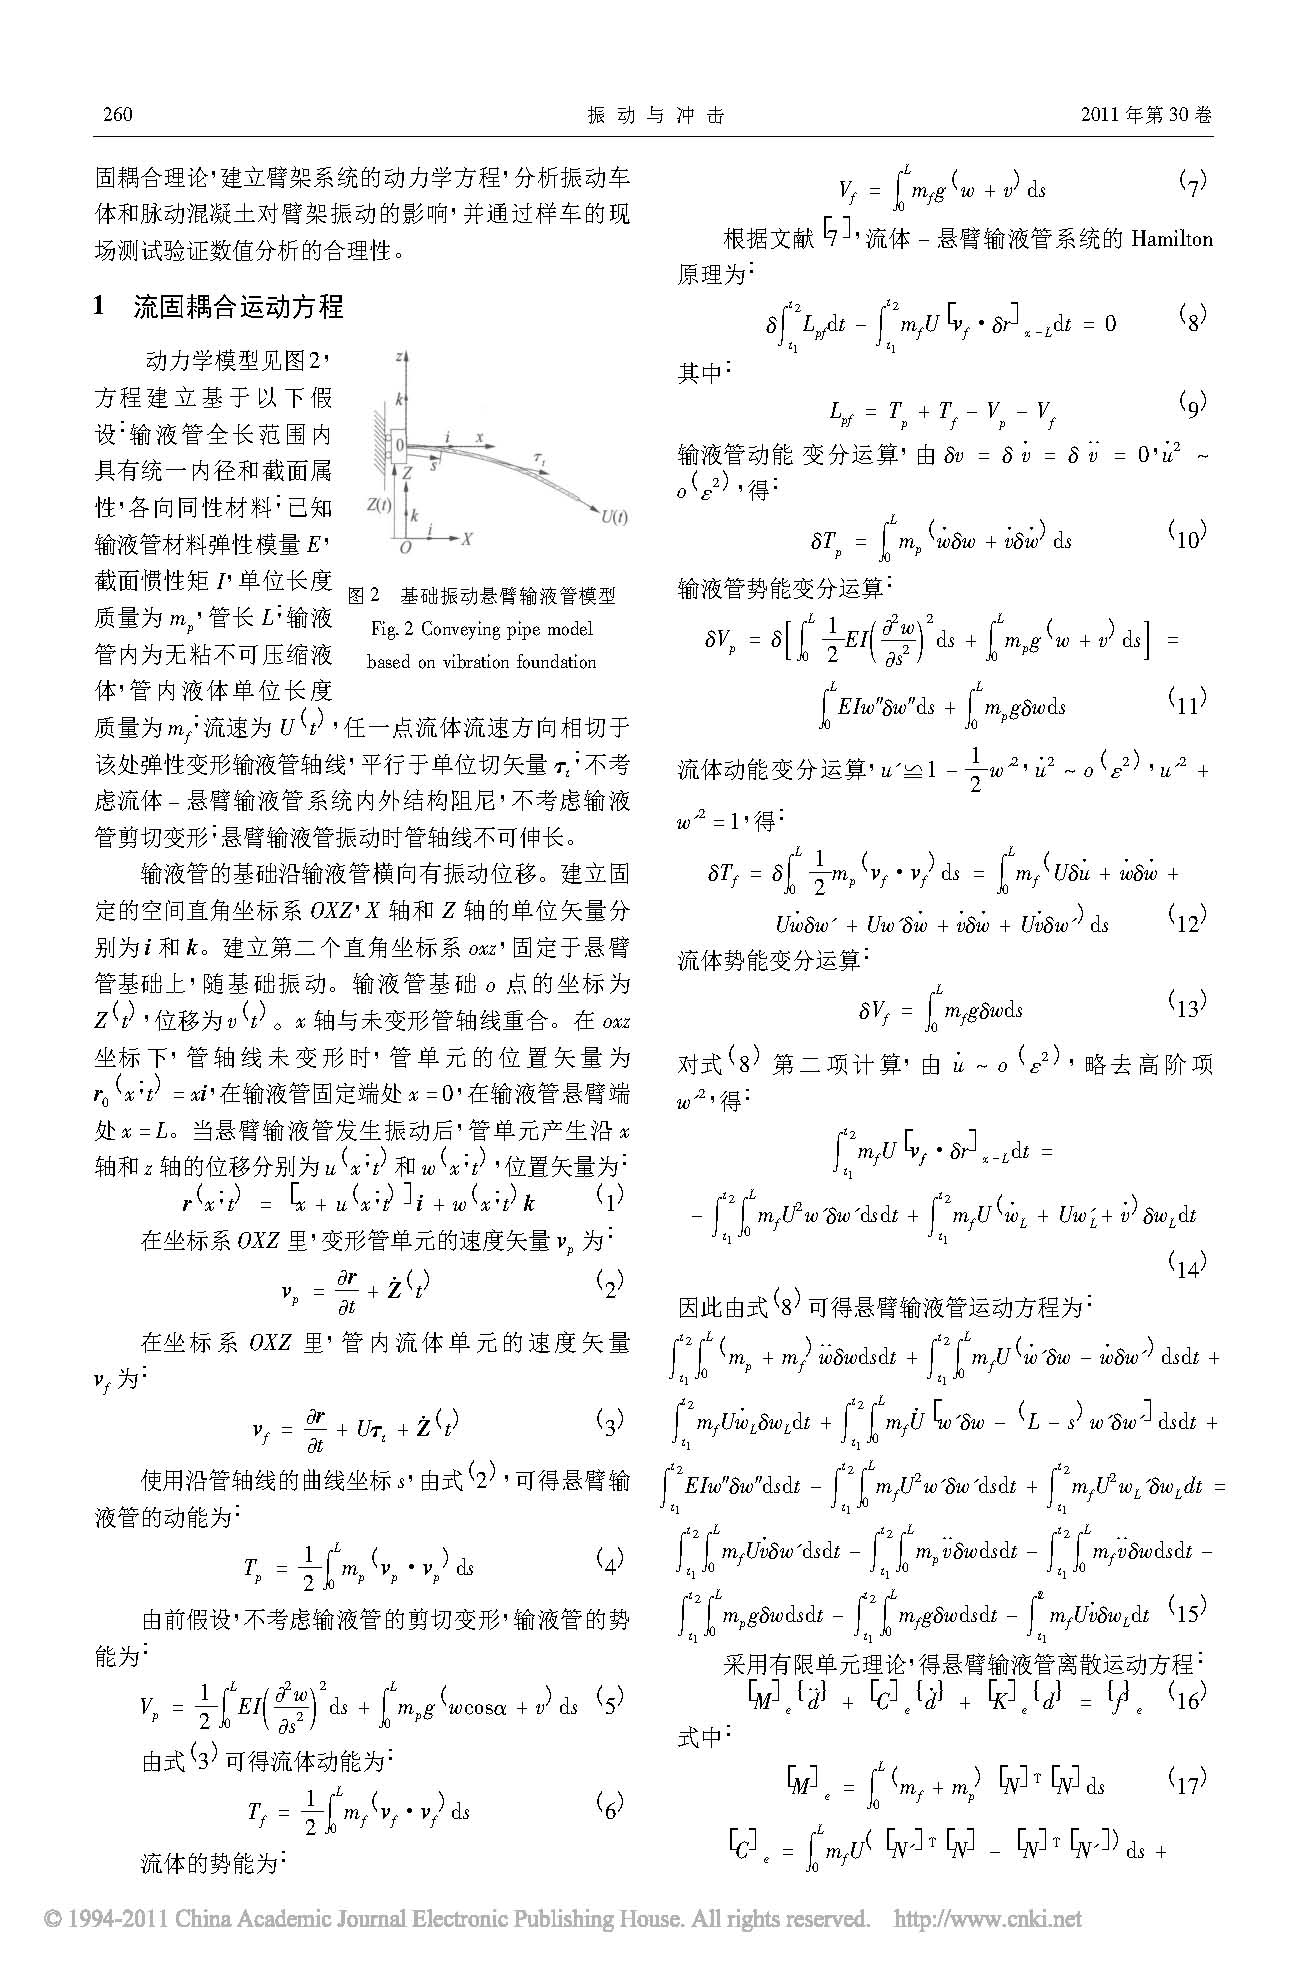 260
振 动 与 冲 击
2011 年第 30 卷
固耦合理论,建立臂架系统的动力学方程,分析振动车
体和脉动混凝土对臂架振动的影响,并通过样车的现
场测试验证数值分析的合理性。
1 流固耦合运动方程
动力学模型见图2,
方程建立基于以下假
设:输液管全长范围内
具有统一内径和截面属
性,各向同性材料;已知
输液管材料弹性模量 E,
截面惯性矩 I,单位长度
质量为 m_p,管长 L;输液
管内为无粘不可压缩液
体,管内液体单位长度
z
k
0 i x
s τ_t
Z
Z(t) k U(t)
i
O X
图 2 基础振动悬臂输液管模型
Fig. 2 Conveying pipe model
based on vibration foundation
质量为 m_f;流速为 U(t),任一点流体流速方向相切于
该处弹性变形输液管轴线,平行于单位切矢量 τ_t;不考
虑流体 – 悬臂输液管系统内外结构阻尼,不考虑输液
管剪切变形;悬臂输液管振动时管轴线不可伸长。
输液管的基础沿输液管横向有振动位移。建立固
定的空间直角坐标系 OXZ,X 轴和 Z 轴的单位矢量分
别为 i 和 k。建立第二个直角坐标系 oxz,固定于悬臂
管基础上,随基础振动。输液管基础 o 点的坐标为
Z(t),位移为 v(t)。x 轴与未变形管轴线重合。在 oxz
坐标下,管轴线未变形时,管单元的位置矢量为
r_0(x;t) = xi,在输液管固定端处 x = 0,在输液管悬臂端
处 x = L。当悬臂输液管发生振动后,管单元产生沿 x
轴和 z 轴的位移分别为 u(x;t) 和 w(x;t),位置矢量为:
r(x;t) = [x + u(x;t)]i + w(x;t)k (1)
在坐标系 OXZ 里,变形管单元的速度矢量 v_p 为:
v_p = ∂r/∂t + Ż(t) (2)
在坐标系 OXZ 里,管内流体单元的速度矢量
v_f 为:
v_f = ∂r/∂t + Uτ_t + Ż(t) (3)
使用沿管轴线的曲线坐标 s,由式(2),可得悬臂输
液管的动能为:
T_p = 1/2 ∫_0^L m_p(v_p · v_p)ds (4)
由前假设,不考虑输液管的剪切变形,输液管的势
能为:
V_p = 1/2 ∫_0^L EI(∂²w/∂s²)² ds + ∫_0^L m_p g(wcosα + v)ds (5)
由式(3)可得流体动能为:
T_f = 1/2 ∫_0^L m_f(v_f · v_f)ds (6)
流体的势能为:
V_f = ∫_0^L m_f g(w + v)ds (7)
根据文献[7],流体 – 悬臂输液管系统的 Hamilton
原理为:
δ∫_{t1}^{t2} L_pf dt – ∫_{t1}^{t2} m_f U[v_f · δr]_{x–L} dt = 0 (8)
其中:
L_pf = T_p + T_f – V_p – V_f (9)
输液管动能 变分运算,由 δv = δv̇ = δv̈ = 0,u̇² ~
o(ε²),得:
δT_p = ∫_0^L m_p(ẇδẇ + v̇δẇ)ds (10)
输液管势能变分运算:
δV_p = δ[∫_0^L 1/2 EI(∂²w/∂s²)² ds + ∫_0^L m_p g(w + v)ds] =
∫_0^L EIw″δw″ds + ∫_0^L m_p gδwds (11)
流体动能变分运算,u′ ≌ 1 – 1/2 w′²,u̇² ~ o(ε²),u′² +
w′² = 1,得:
δT_f = δ∫_0^L 1/2 m_p(v_f · v_f)ds = ∫_0^L m_f(Uδu̇ + ẇδẇ +
Uẇδw′ + Uw′δẇ + v̇δẇ + Uv̇δw′)ds (12)
流体势能变分运算:
δV_f = ∫_0^L m_f gδwds (13)
对式(8) 第二项计算,由 u̇ ~ o(ε²),略去高阶项
w′²,得:
∫_{t1}^{t2} m_f U[v_f · δr]_{x–L} dt =
– ∫_{t1}^{t2}∫_0^L m_f U²w′δw′dsdt + ∫_{t1}^{t2} m_f U(ẇ_L + Uw′_L + v̇)δw_L dt
(14)
因此由式(8)可得悬臂输液管运动方程为:
∫_{t1}^{t2}∫_0^L (m_p + m_f)ẅδwdsdt + ∫_{t1}^{t2}∫_0^L m_f U(ẇ′δw – ẇδw′)dsdt +
∫_{t1}^{t2} m_f Uẇ_L δw_L dt + ∫_{t1}^{t2}∫_0^L m_f U̇[w′δw – (L – s)w′δw′]dsdt +
∫_{t1}^{t2} EIw″δw″dsdt – ∫_{t1}^{t2}∫_0^L m_f U²w′δw′dsdt + ∫_{t1}^{t2} m_f U²w_L′δw_L dt =
∫_{t1}^{t2}∫_0^L m_f Uv̇δw′dsdt – ∫_{t1}^{t2}∫_0^L m_p v̈δwdsdt – ∫_{t1}^{t2}∫_0^L m_f v̈δwdsdt –
∫_{t1}^{t2}∫_0^L m_p gδwdsdt – ∫_{t1}^{t2}∫_0^L m_f gδwdsdt – ∫_{t1}^{t2} m_f Uv̇δw_L dt (15)
采用有限单元理论,得悬臂输液管离散运动方程:
[M]_e{d̈} + [C]_e{ḋ} + [K]_e{d} = {f}_e (16)
式中:
[M]_e = ∫_0^L (m_f + m_p)[N]^T[N]ds (17)
[C]_e = ∫_0^L m_f U([N′]^T[N] – [N]^T[N′])ds +
© 1994-2011 China Academic Journal Electronic Publishing House. All rights reserved. http://www.cnki.net